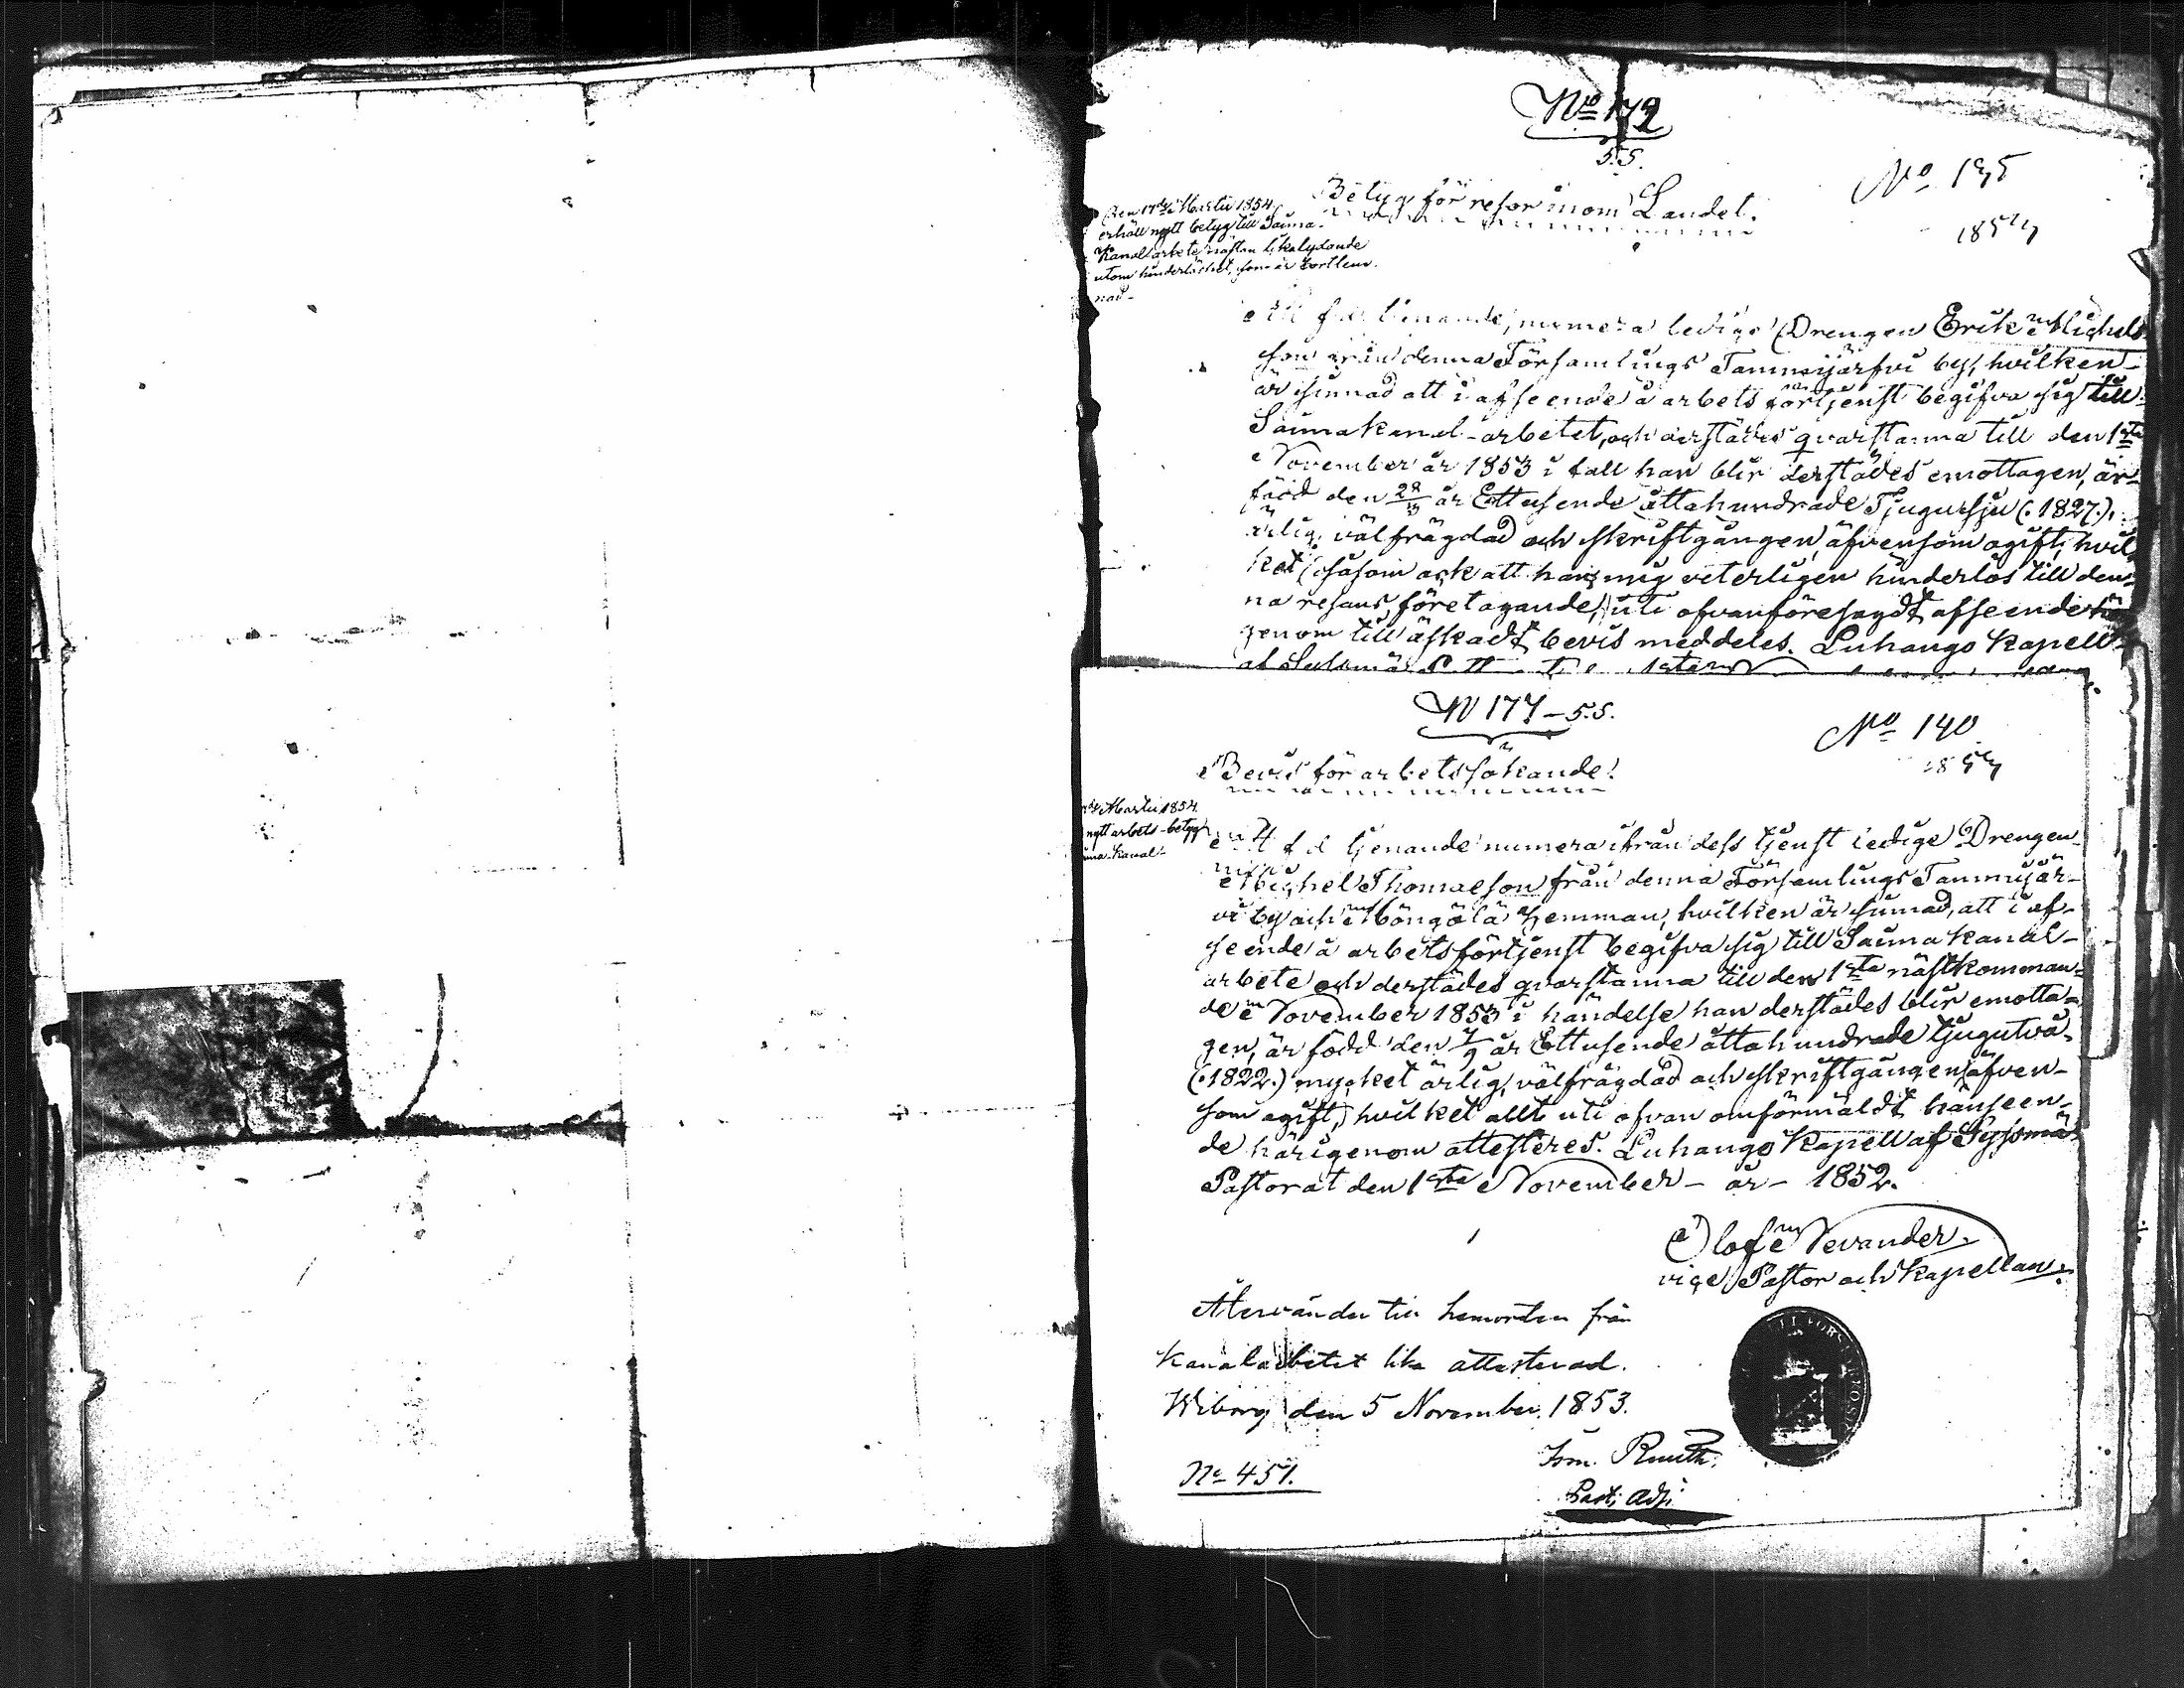 No 172
S.S.
No 195
Betyg för resor inom Landet.
Den 17de Martii 1854
erhöll nytt betyg till Saima
Kanal arbete nästan likalydande
utom hinderlöshet, som är bortlem-
nad-
Att f.d. tienande, numera ledige Drengen Erik Michels-
son från denna Församlings Tammijärfvi by, hvilken
är sinnad att i afseende å arbets förtjenst begifva sig till
Saima kanal-arbetet, och derstädes qvarstanna till den 1sta
November år 1853 i fall han blir derstädes emottagen, är
född den år Ettusende åttahundrade Tjugusju (:1827:),
ärlig, välfrägdad och skriftgången, äfvensom ogift; hvil-
ket såsom ock att han, mig veterligen hinderlös till den-
na resans företagande, uti ofvanföresagdt afseende här-
genom till äskadt bevis meddeles. Luhango Kapell
N 177 - S.S.
No 140
Bevis för arbetssökande!
Martii 1854
nytt arbets-betyg
Kanal-
Att f d tjenande numera ifrån dess tjenst ledige Drengen
Michel Thomasson från denna Församlings Tammijär-
vi by och Möngölä Hemman, hvilken är sinnad, att i af-
seende å arbetsförtjenst begifva sig till Saima kanal-
arbete och derstädes qvarstanna till den 1sta nästkomman-
de November 1853 i händelse han derstädes blir emotta-
gen, är född den 7/9 år Ettusende åttahundrade tjugutvå
(:1822:) mycket ärlig, välfrägdad och skriftgången, äfven-
som ogift, hvilket allt uti ofvan omförmäldt hänseen-
de härigenom attesteres. Luhango Kapell af Sysmä
Pastorat den 1sta November - år - 1852.
Olof Nevander.
vice Pastor och Kapellan.
Återvänder till hemorten från
Kanalarbetet lika attesterad.
Wiborg den 5 November 1853.
No 451.
Past. Adj.